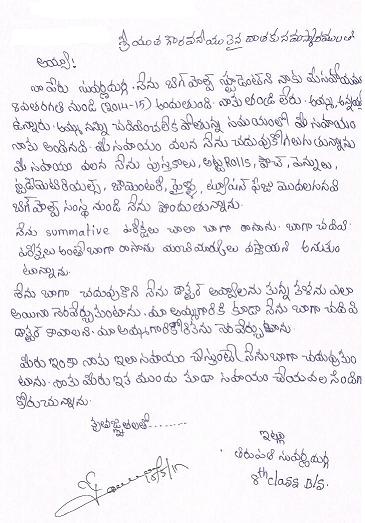 శ్రీయుత గౌరవనీయులైన దాతకు నమస్కారములతో
అయ్యా!
నా పేరు సువర్ణదుర్గ. నేను బిగ్ హెల్ప్ స్టూడెంట్‌ని నాకు మీ సహాయము
8వ తరగతి నుండి (2014-15) అందుతుంది. నాకు తండ్రి లేరు. అమ్మ, అన్నయ్య
ఉన్నారు. అమ్మ నన్ను చదివించలేక పోతున్న సమయంలో మీ సహాయం
నాకు అందినది. మీ సహాయం వలన నేను చదువుకోగలుగుతున్నాను
మీ సహాయం వలన నేను పుస్తకాలు, అట్ట Rolls, పౌచ్, పెన్నులు,
స్టడీమెటీరియల్స్, జామెంటరీ, ఫైళ్ళు, ట్యూషన్ ఫీజు మొదలగునవి
బిగ్ హెల్ప్ సంస్థ నుండి నేను పొందుతున్నాను.
నేను summative పరీక్షలు చాలా బాగా రాసాను. బాగా చదివి
పరీక్షలు అంతే బాగా రాసాను మంచి మార్కులు వస్తాయని అనుకుం
టున్నాను.
నేను బాగా చదువుకొని నేను డాక్టర్ అవ్వాలను కున్న కలను ఎలా
అయినా నెరవేర్చుకుంటాను. మా అమ్మగారికి కూడా నేను బాగా చదివి
డాక్టర్ కావాలని. మా అమ్మగారి కోరికను నెరవేర్చుతాను.
మీరు ఇంకా నాకు ఇలా సహాయం చేస్తుంటే నేను బాగా చదువుకుం
టాను. నాకు మీరు ఇక ముందు కూడా సహాయం చేయవలసిందిగా
కోరుచున్నాను.
కృతజ్ఞతలతో........
ఇట్లు
తిరుపతి సువర్ణదుర్గ
8th class B/S.